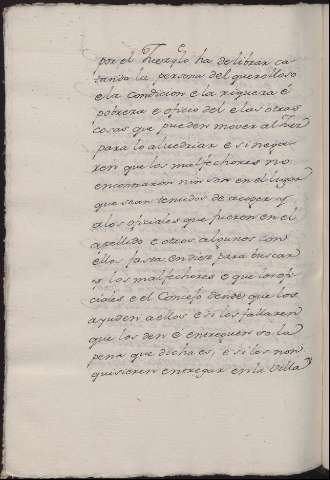 por el Juez, e lo ha de librar ca
tando la persona del querelloso
e la condicion e la riqueza é
pobreza e oficio del e las otras
cosas que pueden mover al Juez
para lo alvedriar e si nega
ren que los malfechores no
encontraron nin son en el lugar
que sean tenudos de acoger y
a los oficiales que fueren en el
apellido e otros algunos con
ellos fasta en diez para buscar
y los malfechores e que los ofi
ciales e el Concejo dende que los
ayuden a ellos e si los fallaren
que los den e entreguen so la
pena que dicha es, e si los non
quisieren entregar en la Villa